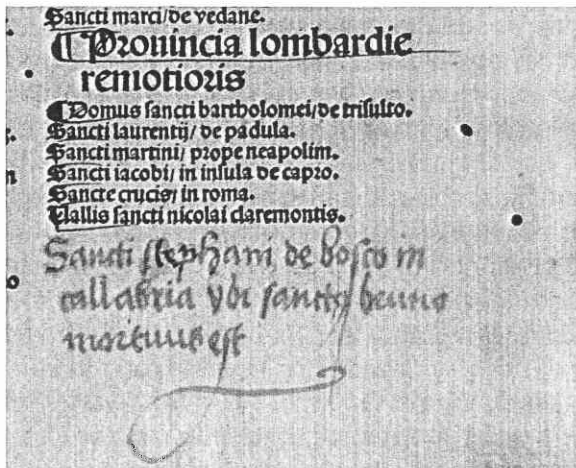 Sancti marci/de vedane.
¶Prouincia lombardie
remotioris
¶Domus sancti bartholomei/de trisulto.
Sancti laurentij/ de padula.
Sancti martini/ prope neapolim.
Sancti iacobi/ in insula de capro.
Sancte crucis/ in roma.
Uallis sancti nicolai claremontis.
Sancti stephani de bosco in
callabria ybi sanctus bruno
mortuus est